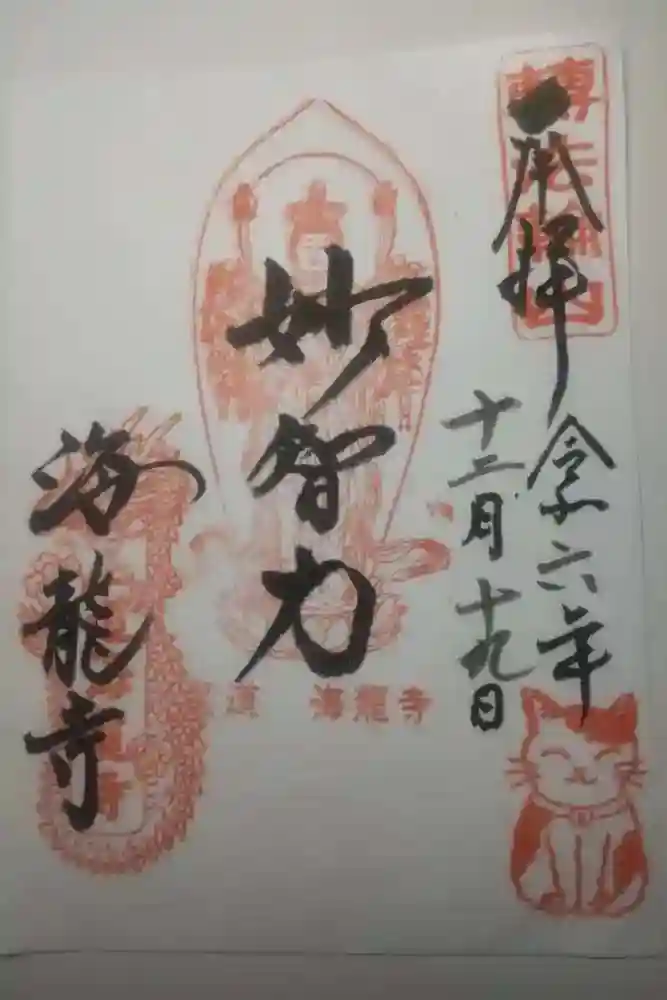 奉拝
令和六年
十二月十九日
妙智力
海龍寺
轉法輪山
海龍寺